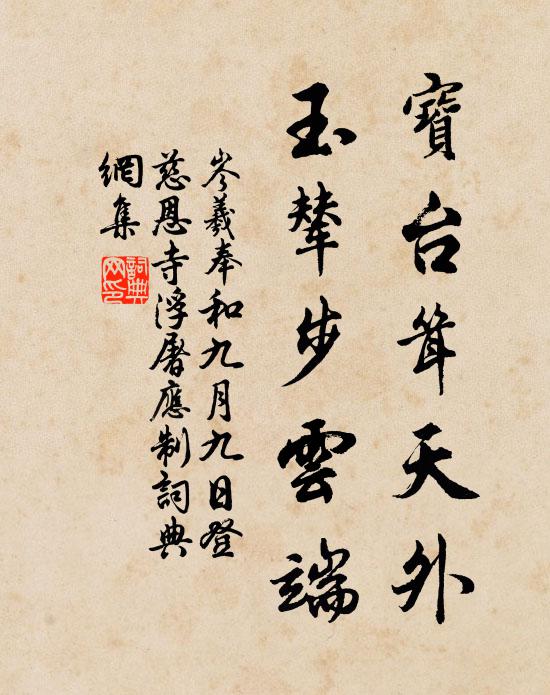 寶台耸天外
玉輦步雲端
岑羲奉和九月九日登
慈恩寺浮屠應制詞典
網集
詞典網印